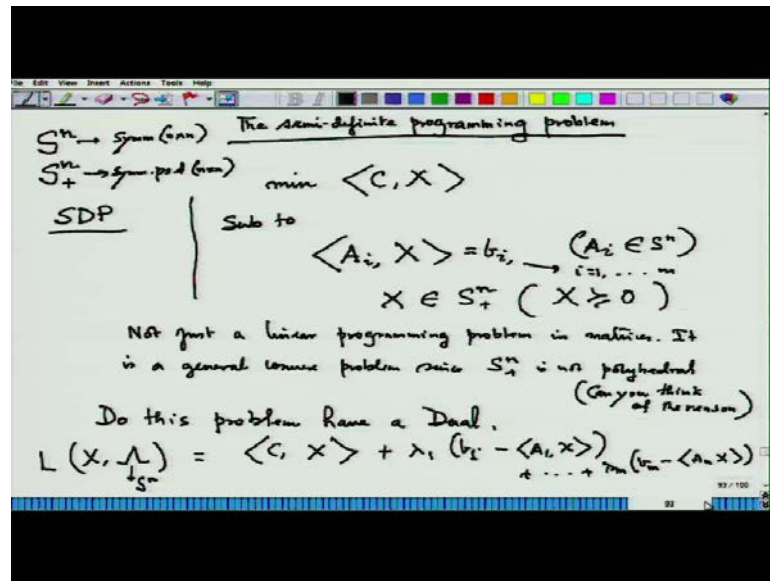 File Edit View Insert Actions Tools Help
The semi-definite programming problem
Sⁿ → Symm (n×n)
S₊ⁿ → Sym. psd (n×n)
min <C, X>
SDP
Sub to
<Aᵢ, X> = bᵢ, → (Aᵢ ∈ Sⁿ)
i=1, .... m
X ∈ S₊ⁿ ( X ≽ 0 )
Not just a linear programming problem in matrices. It
is a general convex problem since S₊ⁿ is not polyhedral
(Can you think
of the reason)
Do this problem have a Dual.
L (X, Λ) = <C, X> + λ₁ (b₁ - <A₁, X>)
+ .... + λₘ (bₘ - <Aₘ X>)
↓Sⁿ
93 / 100
93